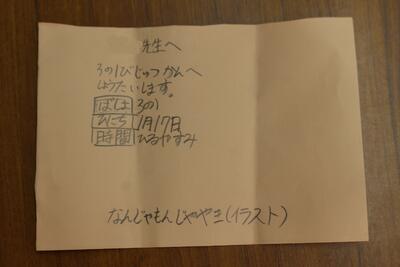 先生へ
3の1びじゅつかんへ
しょうたいします。
ばしょ 3の1
ひにち 1月17日
時間 ひるやすみ
なんじゃもんじゃやき(イラスト)